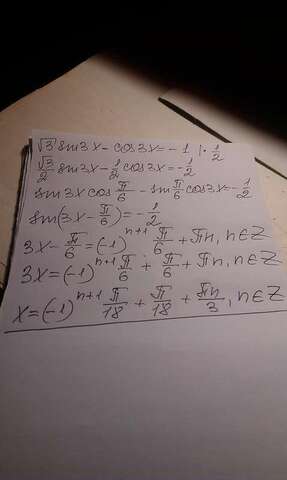 √3 sin3x - cos3x = -1 | · 1/2
√3/2 sin3x - 1/2 cos3x = -1/2
sin3x cos π/6 - sin π/6 cos3x = -1/2
sin(3x - π/6) = -1/2
3x - π/6 = (-1)^(n+1) π/6 + πn, n∈Z
3x = (-1)^(n+1) π/6 + π/6 + πn, n∈Z
x = (-1)^(n+1) π/18 + π/18 + πn/3, n∈Z